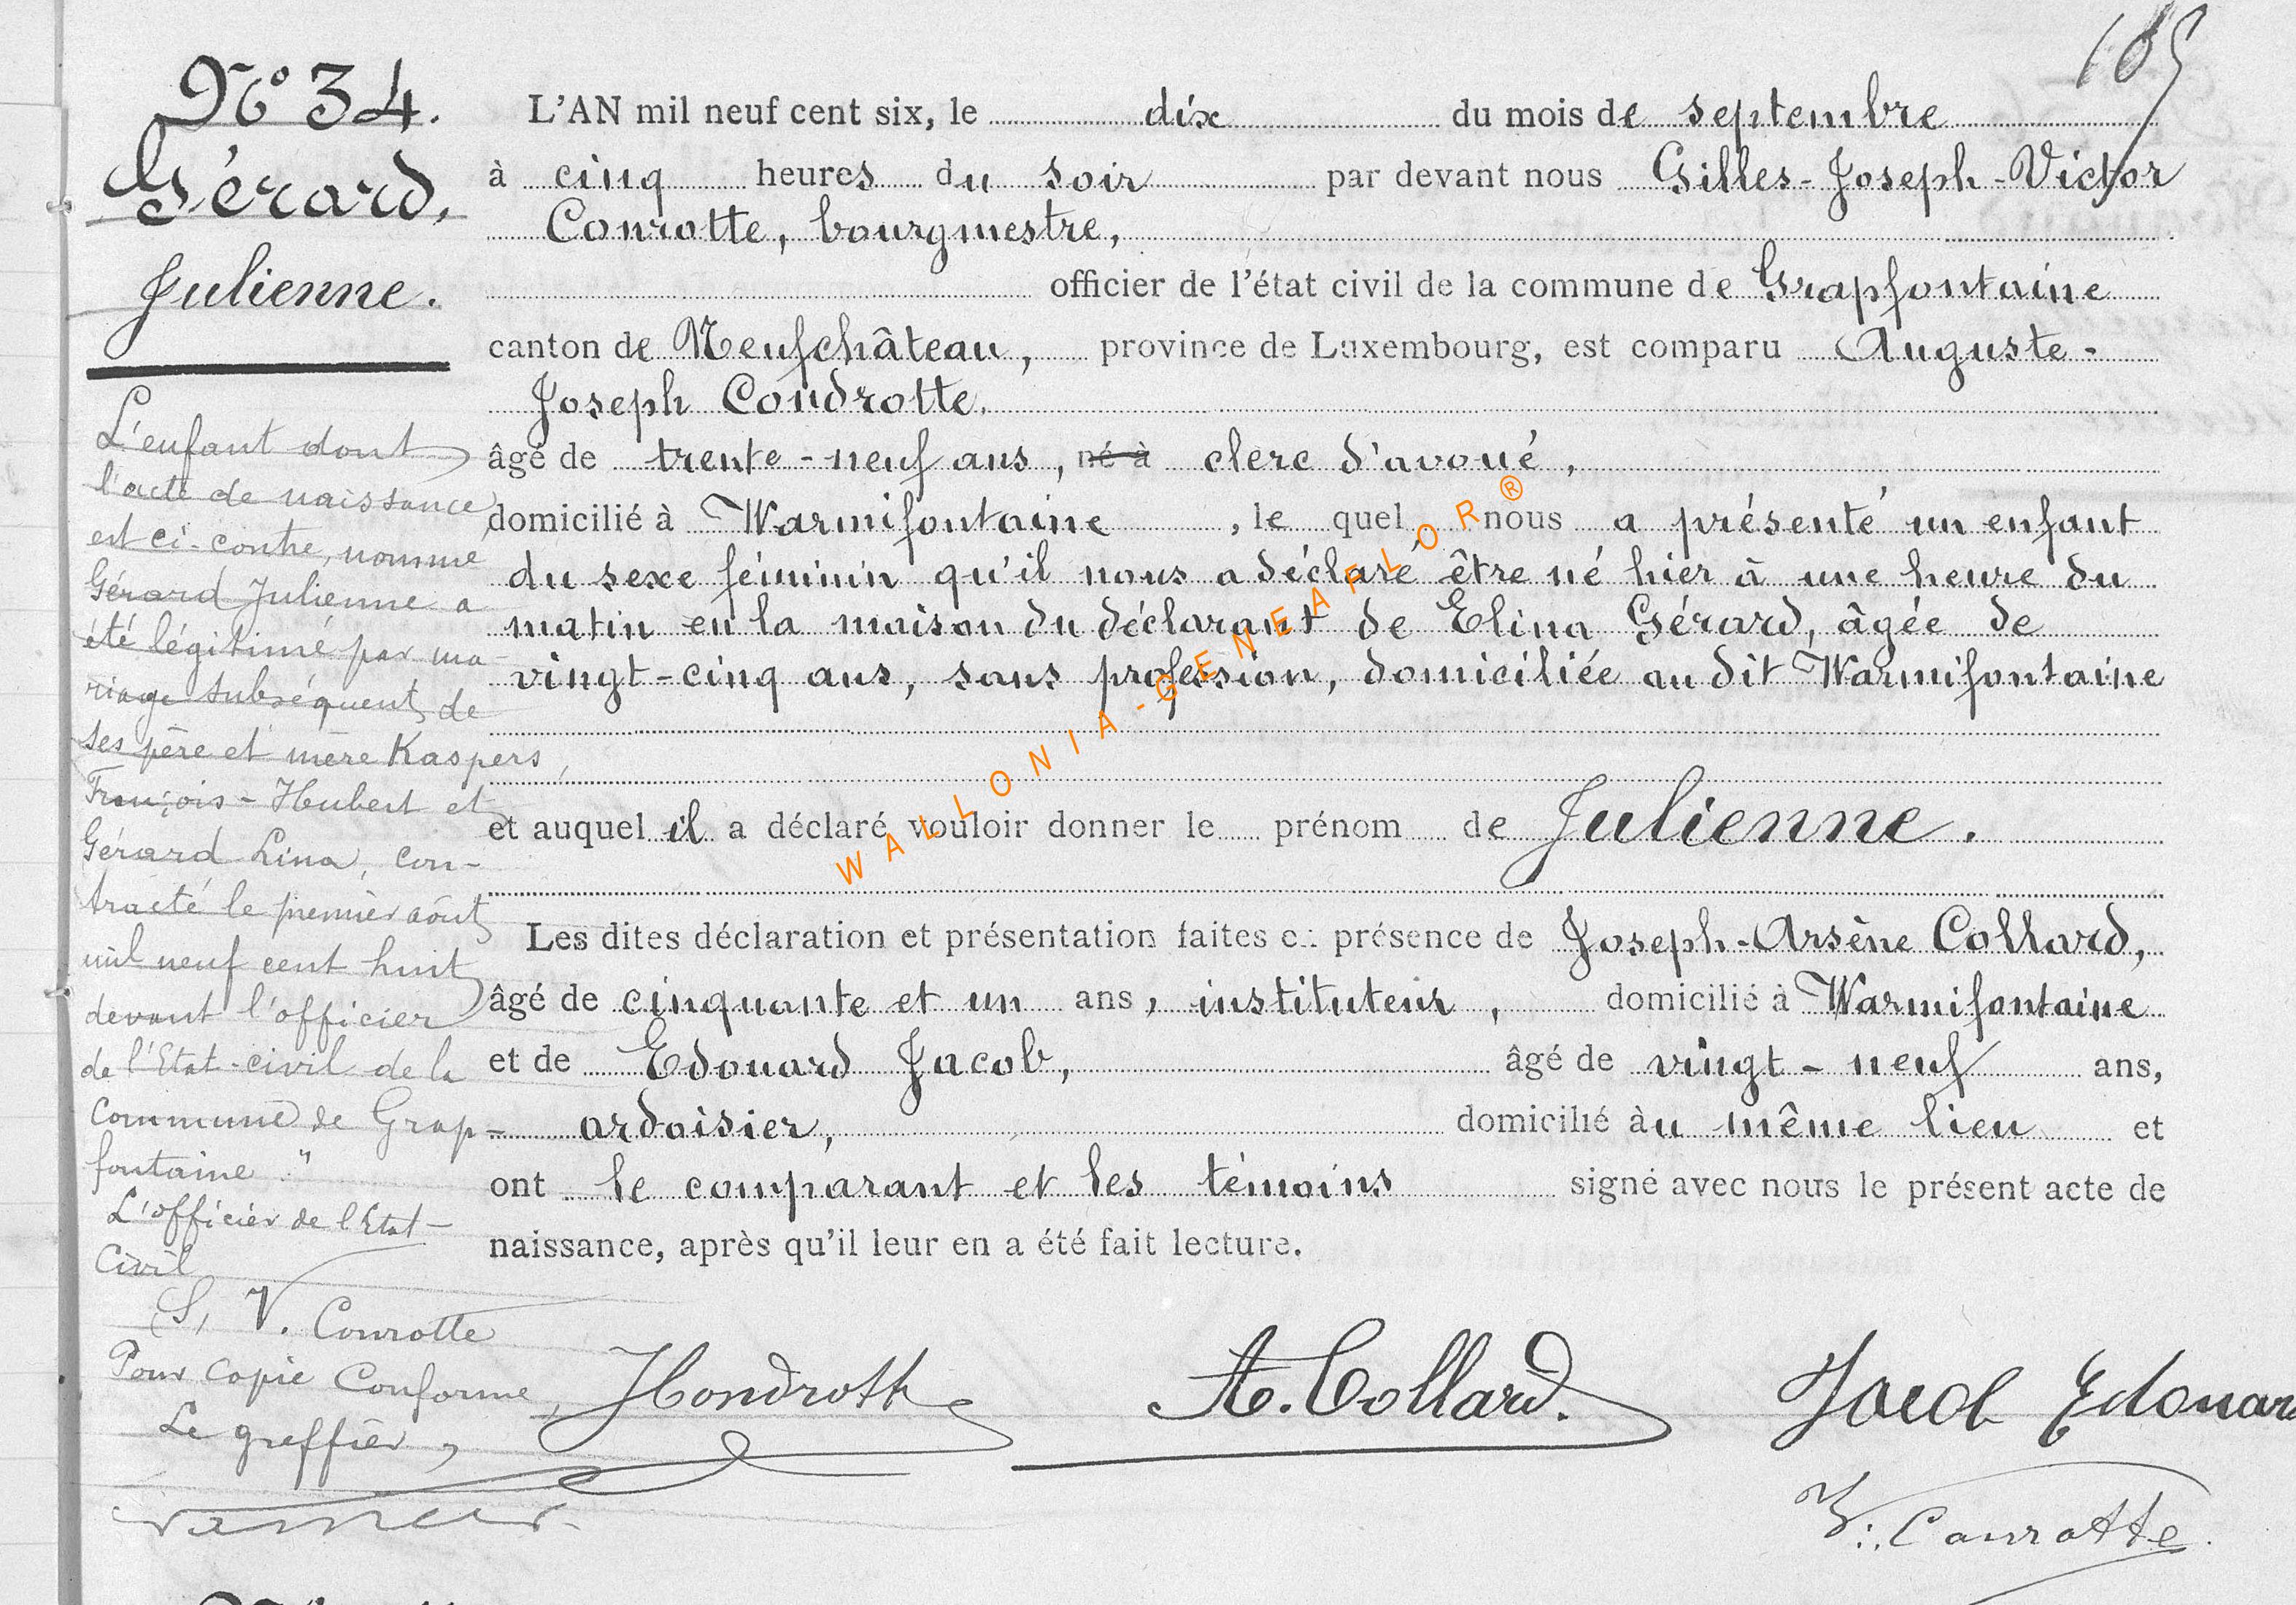 105
N° 34.
Gérard,
Julienne.
L'AN mil neuf cent six, le dix du mois de septembre
à cinq heures du soir par devant nous Gilles-Joseph-Victor
Conrotte, bourgmestre,
officier de l'état civil de la commune de Grapfontaine
canton de Neufchâteau, province de Luxembourg, est comparu Auguste-
Joseph Condrotte.
âgé de trente-neuf ans, né à clerc d'avoué,
domicilié à Warmifontaine, le quel nous a présenté un enfant
du sexe féminin qu'il nous a déclaré être né hier à une heure du
matin en la maison du déclarant de Elina Gérard, âgée de
vingt-cinq ans, sans profession, domiciliée au dit Warmifontaine
et auquel il a déclaré vouloir donner le prénom de Julienne.
Les dites déclaration et présentation faites en présence de Joseph-Arsène Collard,
âgé de cinquante et un ans, instituteur, domicilié à Warmifontaine
et de Edouard Jacob, âgé de vingt-neuf ans,
ardoisier, domicilié àu même lieu et
ont le comparant et les témoins signé avec nous le présent acte de
naissance, après qu'il leur en a été fait lecture.
L'enfant dont
l'acte de naissance
est ci-contre, nommé
Gérard Julienne a
été légitimé par ma-
riage subséquent de
ses père et mère Kaspers,
François-Hubert et
Gérard Lina, con-
tracté le premier août
mil neuf cent huit
devant l'officier
de l'Etat-civil de la
Commune de Grap-
fontaine."
L'officier de l'Etat-
Civil
(S) V. Conrotte
Pour Copie Conforme,
Le greffier,
A. Collard.
Jacob Edouard
V. Conrotte
WALLONIA-GENEAFLOR®